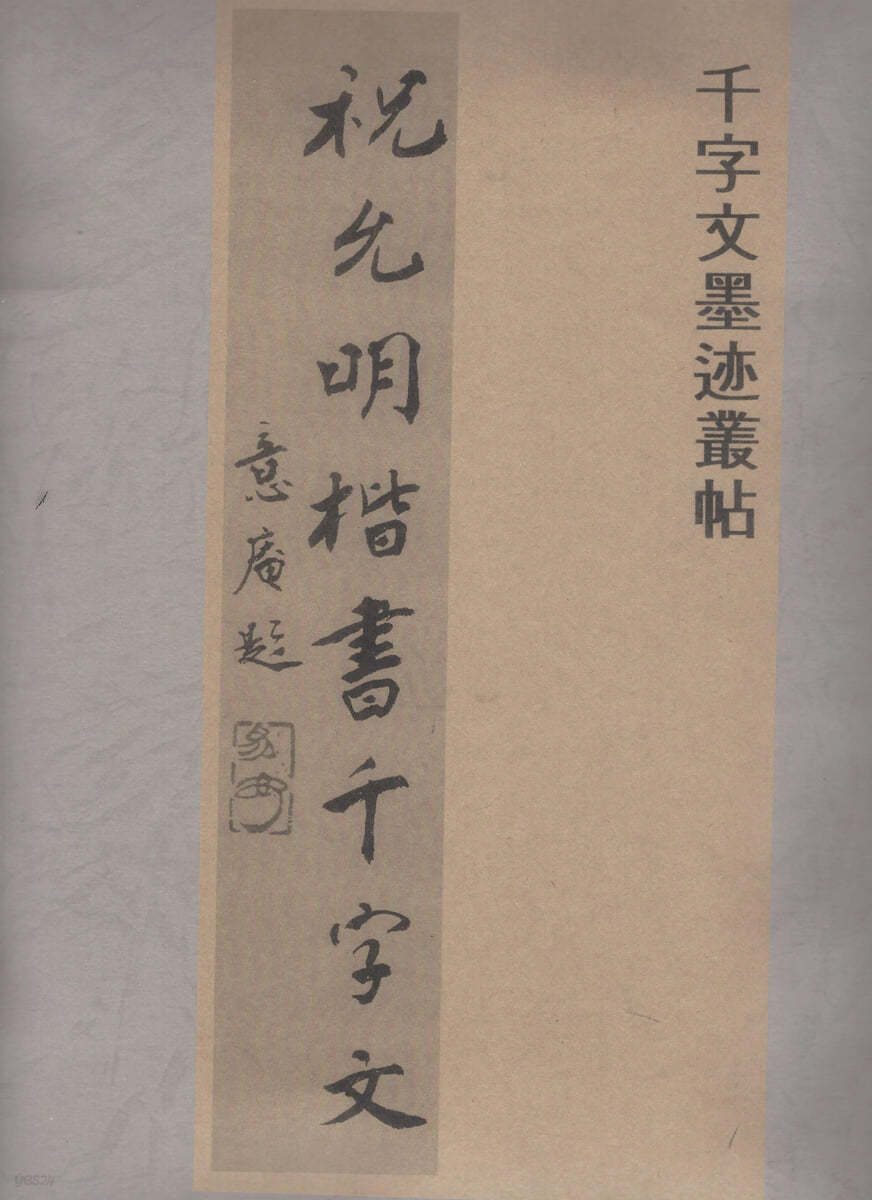 千字文墨迹叢帖
祝允明楷書千字文
意庵題
yes24